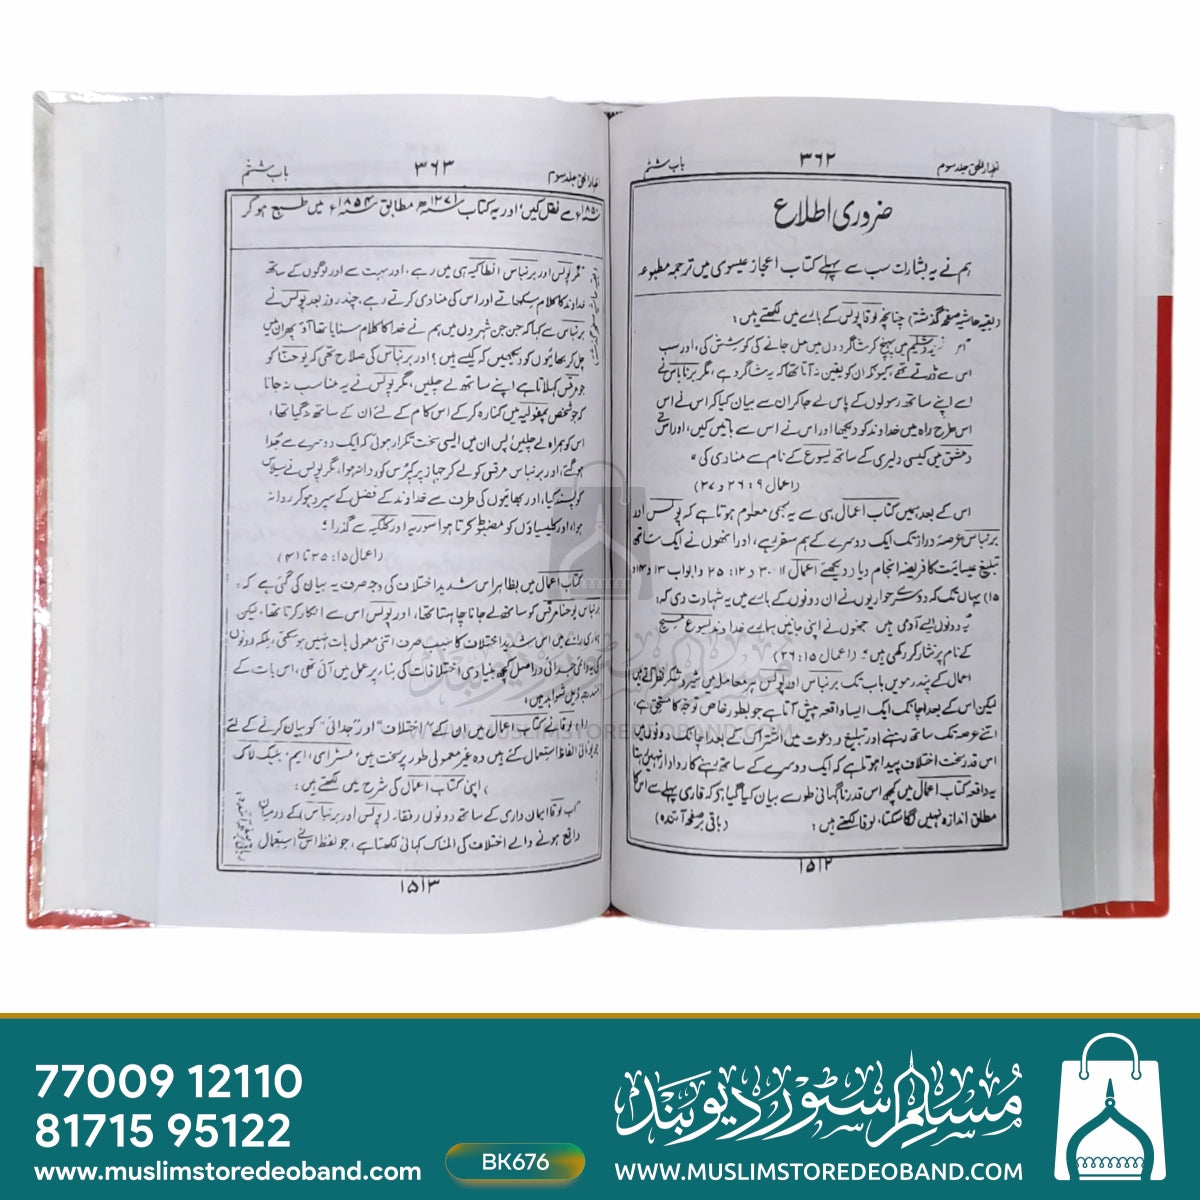 اظہار الحق جلد سوم ۳۶۲ باب ششم
ضروری اطلاع
ہم نے یہ بشارات سب سے پہلے کتاب اعجاز عیسوی میں ترجمہ مطبوعہ
(بقیہ حاشیہ صفحہ گذشتہ) چنانچہ لوقا پولس کے بارے میں لکھتے ہیں:
میں پہنچ کر شاگردوں میں مل جانے کی کوشش کی، اور سب
اس سے ڈرتے تھے، کیونکہ ان کو یقین نہ آتا تھا کہ یہ شاگرد ہے، مگر برناباس نے
اسے اپنے ساتھ رسولوں کے پاس لے جا کر ان سے بیان کیا کہ اس نے اس
اس طرح راہ میں خداوند کو دیکھا اور اس نے اس سے باتیں کیں، اور اس نے
دمشق میں کیسی دلیری کے ساتھ یسوع کے نام سے منادی کی"
(اعمال ۹: ۲۶ و ۲۷)
اس کے بعد ہمیں کتاب اعمال ہی سے یہ بھی معلوم ہوتا ہے کہ پولس اور
برنباس عرصہ دراز تک ایک دوسرے کے ہم سفر رہے، اور انھوں نے ایک ساتھ
تبلیغ عیسائیت کا فریضہ انجام دیا، (دیکھئے اعمال ۱۱: ۳۰ و ۱۲: ۲۵ و ابواب ۱۳ و ۱۴ و
۱۵) یہاں تک کہ دوسرے حواریوں نے ان دونوں کے بارے میں یہ شہادت دی کہ:
یہ دونوں ایسے آدمی ہیں جنھوں نے اپنی جانیں ہمارے خداوند یسوع مسیح
کے نام پر نثار کر رکھی ہیں" (اعمال ۱۵: ۲۶)
اعمال کے پندرہویں باب تک برنباس اور پولس ہر معاملہ میں شیر و شکر نظر آتے ہیں
لیکن اس کے بعد اچانک ایک ایسا واقعہ پیش آتا ہے جو بطور خاص توجہ کا مستحق ہے،
اتنے عرصہ تک ساتھ رہنے اور تبلیغ و دعوت میں اشتراک کے بعد اچانک دونوں میں
اس قدر سخت اختلاف پیدا ہوتا ہے کہ ایک دوسرے کے ساتھ رہنے کا روادار نہیں رہتا
یہ واقعہ کتاب اعمال میں کچھ اس قدر ناگہانی طور سے بیان کیا گیا ہو کہ قاری پہلے سے اس کا
مطلق اندازہ نہیں لگا سکتا، لوقا لکھتے ہیں: (باقی بر صفحہ آئندہ)
۱۵۱۲
اظہار الحق جلد سوم ۳۶۳ باب ششم
۱۸۵۰ء سے نقل کیں، اور یہ کتاب ۱۲۷۱ھ مطابق ۱۸۵۴ء میں طبع ہو کر
مگر پولس اور برنباس انطاکیہ ہی میں رہے، اور بہت سے اور لوگوں کے ساتھ
خداوند کا کلام سکھاتے اور اس کی منادی کرتے رہے، چند روز بعد پولس نے
برنباس سے کہا کہ جن جن شہروں میں ہم نے خدا کا کلام سنایا تھا آؤ پھر ان میں
چل کر بھائیوں کو دیکھیں کہ کیسے ہیں؟ اور برنباس کی صلاح تھی کہ یوحنا کو
جو مرقس کہلاتا ہے اپنے ساتھ لے چلیں، مگر پولس نے یہ مناسب نہ جانا
کہ جو شخص پمفولیہ میں کنارہ کر کے اس کام کے لئے ان کے ساتھ نہ گیا تھا،
اس کو ہمراہ لے چلیں، پس ان میں ایسی سخت تکرار ہوئی کہ ایک دوسرے سے جدا
ہو گئے، اور برنباس مرقس کو لے کر جہاز پر کپرس کو روانہ ہوا، مگر پولس نے سیلاس
کو پسند کیا، اور بھائیوں کی طرف سے خداوند کے فضل کے سپرد ہو کر روانہ
ہوا، اور کلیسیاؤں کو مضبوط کرتا ہوا سوریہ اور کلکیہ سے گذرا"
(اعمال ۱۵: ۳۵ تا ۴۱)
کتاب اعمال میں بظاہر اس شدید اختلاف کی وجہ صرف یہ بیان کی گئی ہے کہ
برنباس یوحنا مرقس کو ساتھ لے جانا چاہتا تھا، اور پولس اس سے انکار کرتا تھا، لیکن
ہماری رائے میں اس شدید اختلاف کا سبب صرف اتنی معمولی بات نہیں ہو سکتی، بلکہ دونوں
کی یہ دائمی جدائی دراصل کچھ بنیادی اختلافات کی بنا پر عمل میں آئی تھی، اس بات کے
مندرجہ ذیل شواہد ہیں:
(۱) لوقا نے کتاب اعمال میں ان کے "اختلاف" اور "جدائی" کو بیان کرنے کے لئے
جو یونانی الفاظ استعمال کئے ہیں وہ غیر معمولی طور پر سخت ہیں، مسٹر ای، ایم، بلیک لاک
اپنی کتاب اعمال کی شرح میں لکھتے ہیں:
"اب لوقا ایمان داری کے ساتھ دونوں رفقاء (پولس اور برنباس) کے درمیان
واقع ہونے والے اختلاف کی المناک کہانی لکھتا ہے، جو لفظ اس نے استعمال
۱۵۱۳
مسلم سٹور دیوبند
WWW.MUSLIMSTOREDEOBAND.COM
77009 12110
81715 95122
www.muslimstoredeoband.com
BK676
مسلم سٹور دیوبند
WWW.MUSLIMSTOREDEOBAND.COM